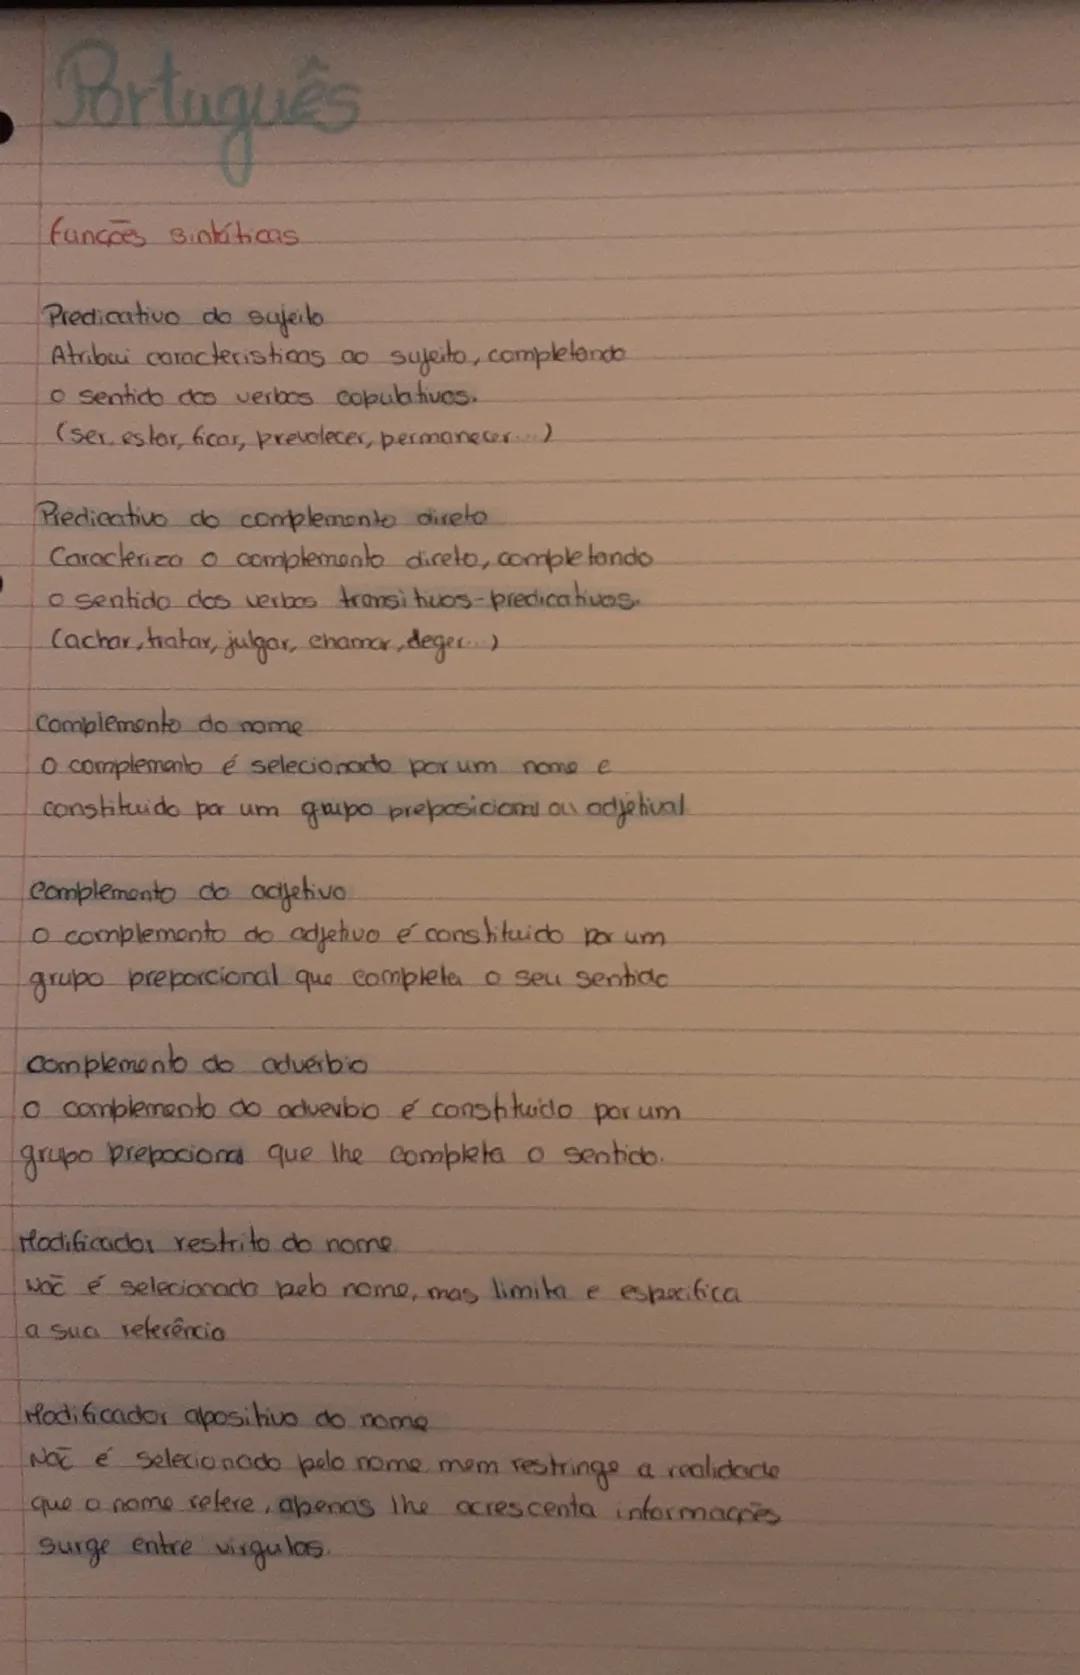 Português
funções sintáticas
Predicativo do sujeito
Atribui caracteristicas ao sujeito, completando
o sentido dos verbos copulativos.
(ser, estar, ficar, prevalecer, permanecer...)
Predicativo do complemento direto
Caracteriza o complemento direto, completando
o sentido dos verbos transitivos-predicativos.
(achar, tratar, julgar, chamar, deger...)
Complemento do nome
O complemento é selecionado por um nome e
constituido por um grupo preposicional ou adjetival
Complemento do adjetivo
O complemento do adjetivo é constituido por um
grupo preporcional que completa o seu sentido
Complemento do advérbio
O complemento do adverbio é constituido por um
grupo prepocional que lhe completa o sentido.
Modificador restrito do nome
Não é selecionado pelo nome, mas limita e especifica
a sua referência
Modificador apositivo do nome
Não é selecionado pelo nome nem restringe a realidade
que o nome refere, apenas lhe acrescenta informações
surge entre virgulas.